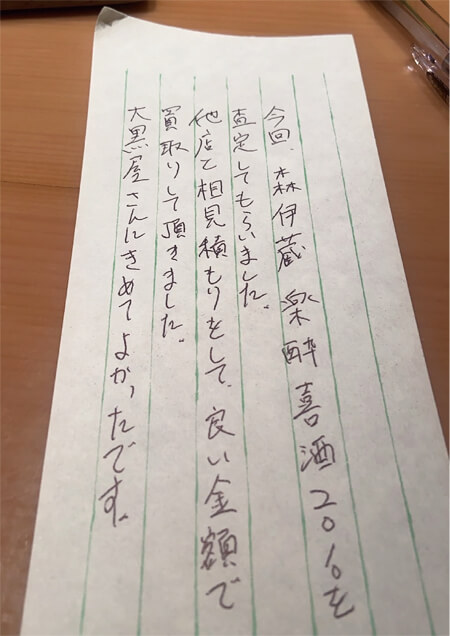 今回、森伊蔵 楽酔喜酒2016を
査定してもらいました。
他店と相見積もりをして、良い金額で
買取りして頂きました。
大黒屋さんにきめてよかったです。